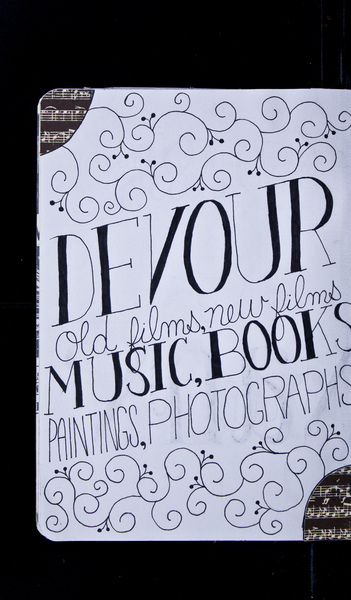 DEVOUR
old films, new films
MUSIC, BOOKS
PAINTINGS, PHOTOGRAPHS